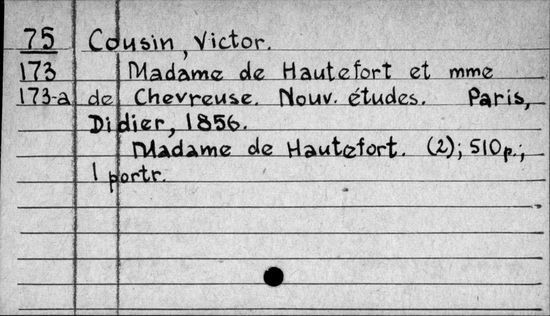 75 Cousin, Victor.
173 Madame de Hautefort et mme
173-a de Chevreuse. Nouv. études. Paris,
Didier, 1856.
Madame de Hautefort. (2); 510p.;
1 portr.